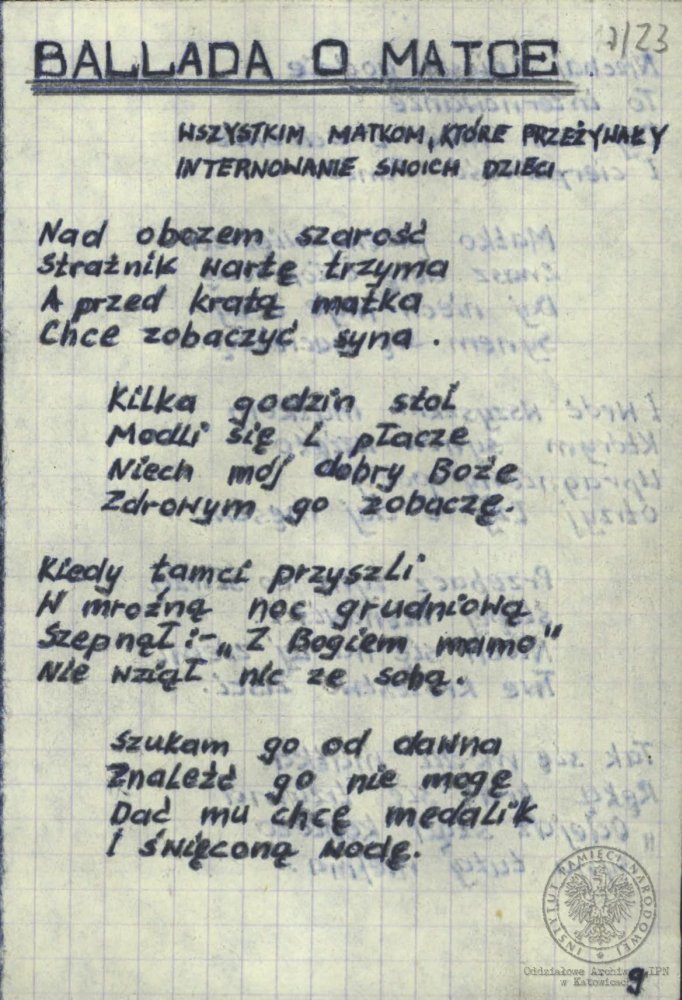 17/23
BALLADA O MATCE
WSZYSTKIM MATKOM, KTÓRE PRZEŻYWAŁY
INTERNOWANIE SWOICH DZIECI
Nad obozem szarość
Strażnik wartę trzyma
A przed kratą matka
Chce zobaczyć syna.
Kilka godzin stoi
Modli się i płacze
Niech mój dobry Boże
Zdrowym go zobaczę.
Kiedy tamci przyszli
W mroźną noc grudniową
Szepnął :-„Z Bogiem mamo"
Nie wziął nic ze sobą.
Szukam go od dawna
Znaleźć go nie mogę
Dać mu chcę medalik
I święconą wodę.
INSTYTUT PAMIĘCI NARODOWEJ
Oddziałowe Archiwum IPN
w Katowicach
9